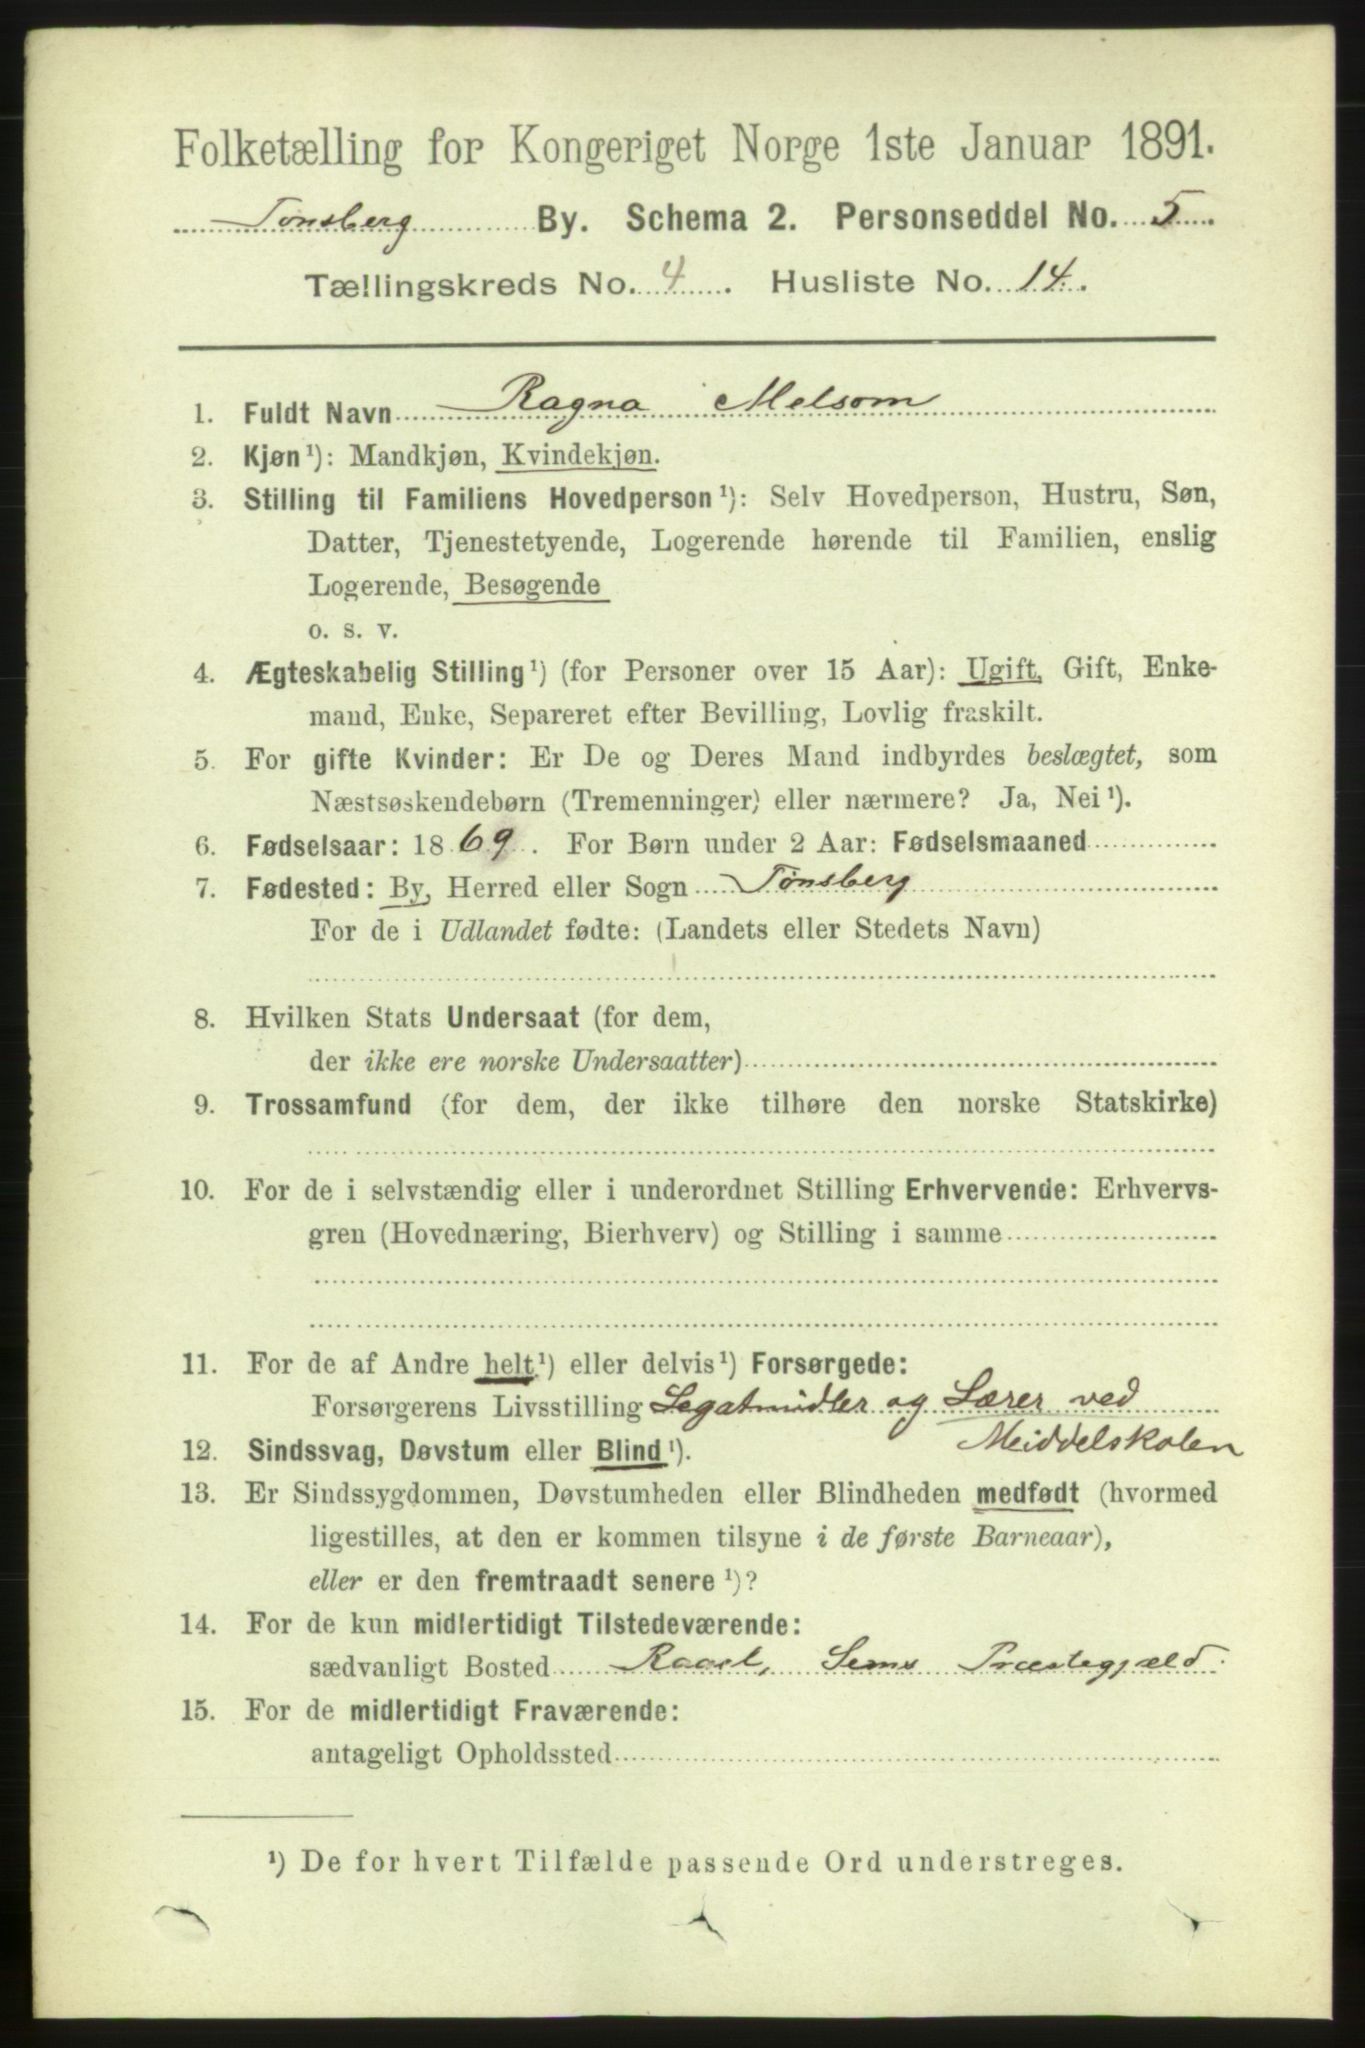 Folketælling for Kongeriget Norge 1ste Januar 1891.
Tønsberg By. Schema 2. Personseddel No. 5
Tællingskreds No. 4. Husliste No. 14.
1. Fuldt Navn Ragna Melsom
2. Kjøn¹): Mandkjøn, Kvindekjøn.
3. Stilling til Familiens Hovedperson¹): Selv Hovedperson, Hustru, Søn,
Datter, Tjenestetyende, Logerende hørende til Familien, enslig
Logerende, Besøgende
o. s. v.
4. Ægteskabelig Stilling¹) (for Personer over 15 Aar): Ugift, Gift, Enke-
mand, Enke, Separeret efter Bevilling, Lovlig fraskilt.
5. For gifte Kvinder: Er De og Deres Mand indbyrdes beslægtet, som
Næstsøskendebørn (Tremenninger) eller nærmere? Ja, Nei¹).
6. Fødselsaar: 1869. For Børn under 2 Aar: Fødselsmaaned
7. Fødested: By, Herred eller Sogn Tønsberg
For de i Udlandet fødte: (Landets eller Stedets Navn)
8. Hvilken Stats Undersaat (for dem,
der ikke ere norske Undersaatter)
9. Trossamfund (for dem, der ikke tilhøre den norske Statskirke)
10. For de i selvstændig eller i underordnet Stilling Erhvervende: Erhvervs-
gren (Hovednæring, Bierhverv) og Stilling i samme
11. For de af Andre helt¹) eller delvis¹) Forsørgede:
Forsørgerens Livsstilling Legatmidler og Lærer ved
Meiddelskolen
12. Sindssvag, Døvstum eller Blind¹).
13. Er Sindssygdommen, Døvstumheden eller Blindheden medfødt (hvormed
ligestilles, at den er kommen tilsyne i de første Barneaar),
eller er den fremtraadt senere¹)?
14. For de kun midlertidigt Tilstedeværende:
sædvanligt Bosted Rael, Sems Præstegjæld.
15. For de midlertidigt Fraværende:
antageligt Opholdssted
¹) De for hvert Tilfælde passende Ord understreges.